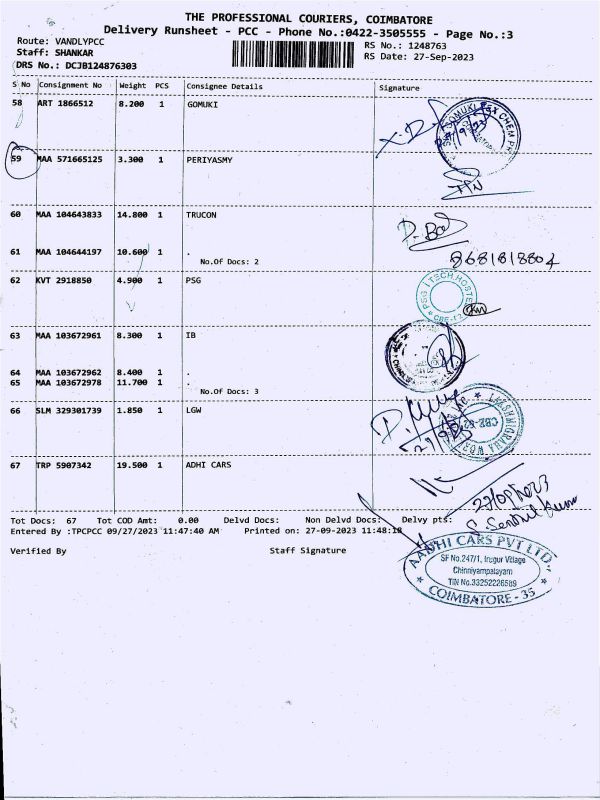 THE PROFESSIONAL COURIERS, COIMBATORE
Delivery Runsheet - PCC - Phone No.:0422-3505555 - Page No.:3
Route: VANDLYPCC
Staff: SHANKAR
DRS No.: DCJB124876303
RS No.: 1248763
RS Date: 27-Sep-2023
S No Consignment No Weight PCS Consignee Details Signature
58 ART 1866512 8.200 1 GOMUKI
59 MAA 571665125 3.300 1 PERIYASMY
60 MAA 104643833 14.800 1 TRUCON
61 MAA 104644197 10.600 1 .
No.Of Docs: 2
8681818804
62 KVT 2918850 4.900 1 PSG
PSG iTECH HOSTEL
63 MAA 103672961 8.300 1 IB
64 MAA 103672962 8.400 1 .
65 MAA 103672978 11.700 1 .
No.Of Docs: 3
66 SLM 329301739 1.850 1 LGW
CBE-62
67 TRP 5907342 19.500 1 ADHI CARS
S. Senthil Kumar
Tot Docs: 67 Tot COD Amt: 0.00 Delvd Docs: Non Delvd Docs: Delvy pts:
Entered By :TPCPCC 09/27/2023 11:47:40 AM Printed on: 27-09-2023 11:48:18
Verified By Staff Signature
AADHI CARS PVT LTD
SF No.247/1, Irugur Village
Chinniyampalayam
TIN No.33252226589
COIMBATORE - 35